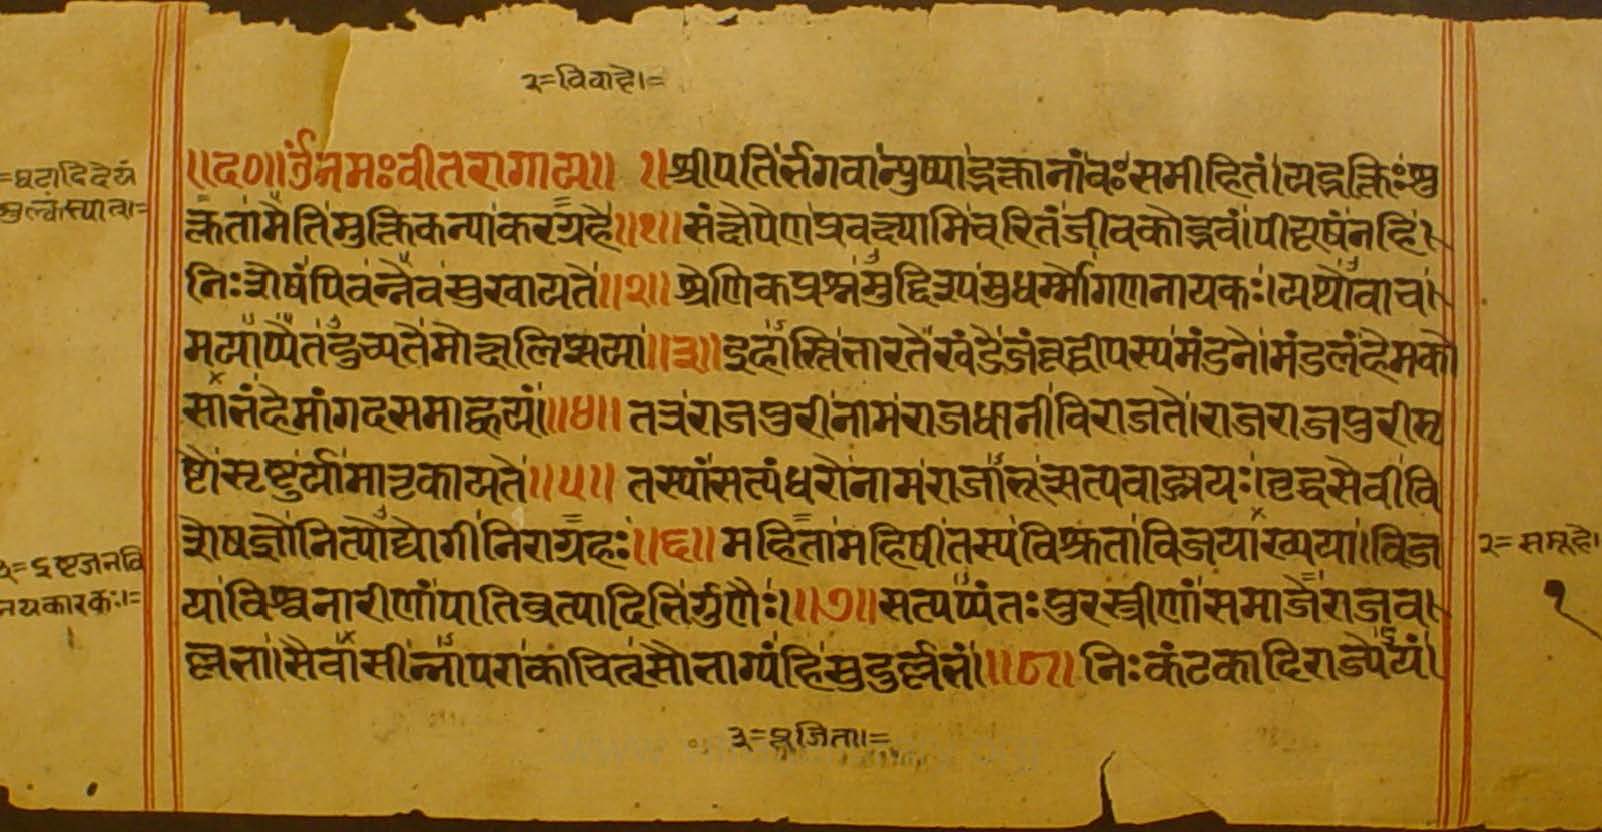 २=विवाहे।=
॥द०॥ ॐ नमः वीतरागाय॥ १। श्रीपतिर्भगवान्पुष्याद्भक्तानां वः समीहितं। यद्भक्तिः शु
ल्कतामेति मुक्तिकन्याकरग्रहे॥१॥ संक्षेपेण प्रवक्ष्यामि चरितं जीवकोद्भवं। पीयूषं न हि
निःशेषं पिबन्नेव सुखायते॥२॥ श्रेणिकप्रश्नमुद्दिश्य सुधर्म्मो गणनायकः। यथोवाच
मयाप्येतदुच्यते मोक्षलिप्सया॥३॥ इहास्ति भारते खंडे जंबूद्वीपस्य मंडने। मंडलं हेमको
साभं हेमांगदसमाह्वयं॥४॥ तत्र राजपुरी नाम राजधानी विराजते। राजराजपुरीसृ
ष्टौ स्रष्टुर्या मातृकायते॥५॥ तस्यां सत्यंधरो नाम राजाभूत्सत्यवाङ्मयः। वृद्धसेवी वि
शेषज्ञो नित्योद्योगी निराग्रहः॥६॥ महिता महिषी तस्य विश्रुता विजयाख्यया। विज
या विश्वनारीणां पातिव्रत्यादिभिर्गुणैः॥७॥ सत्यप्यंतःपुरस्त्रीणां समाजे राजव
ल्लभा। सैवासीन्नापरा काचित् सौभाग्यं हि सुदुर्ल्लभं॥८॥ निःकंटकाधिराज्येयं।
३=पूजिता।=
३=इष्टजनवि
नयकारकः।=
२=समूहे।
१